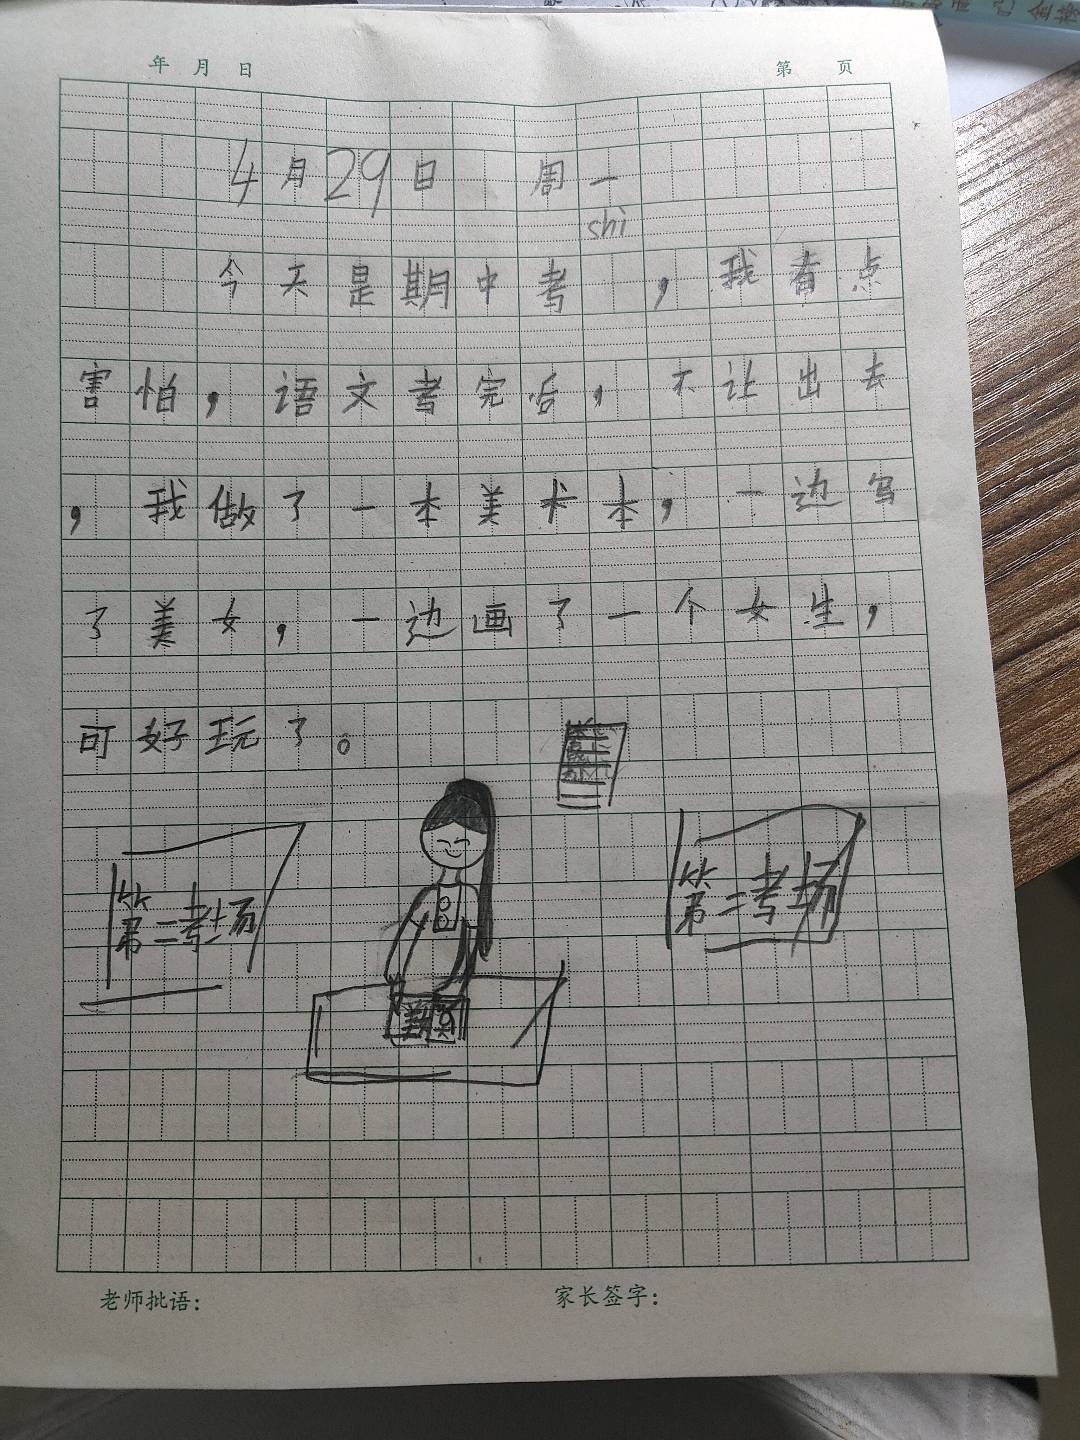 年 月 日
第 页
4月29日 周一
shì
今天是期中考 ，我有点
害怕，语文考完后，不让出去
，我做了一本美术本，一边写
了美女，一边画了一个女生，
可好玩了。
第二考场
第二考场
老师批语：
家长签字：